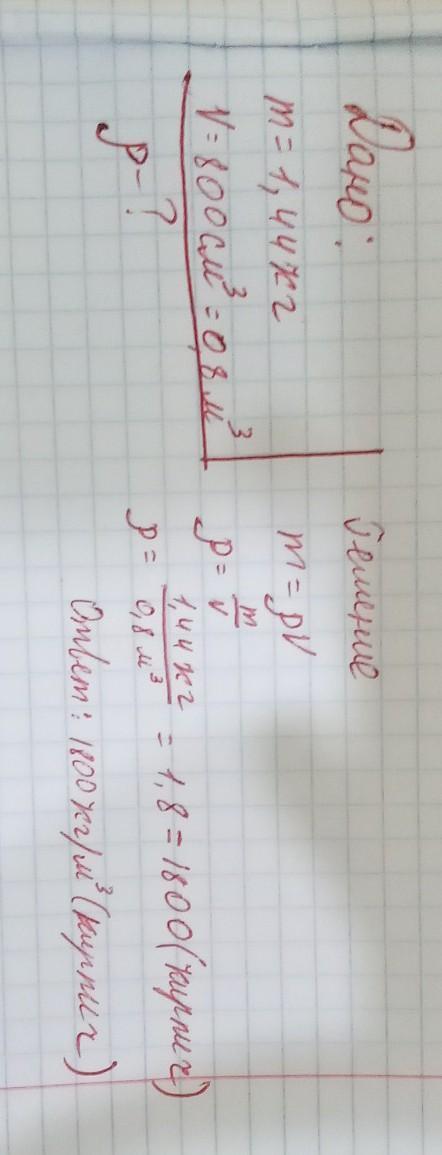 Дано:
m = 1,44кг
V = 800см³ = 0,8м³
ρ - ?
Решение
m = ρV
ρ = m/V
ρ = 1,44кг/0,8м³ = 1,8 = 1800 (кирпич)
Ответ: 1800кг/м³ (кирпич)